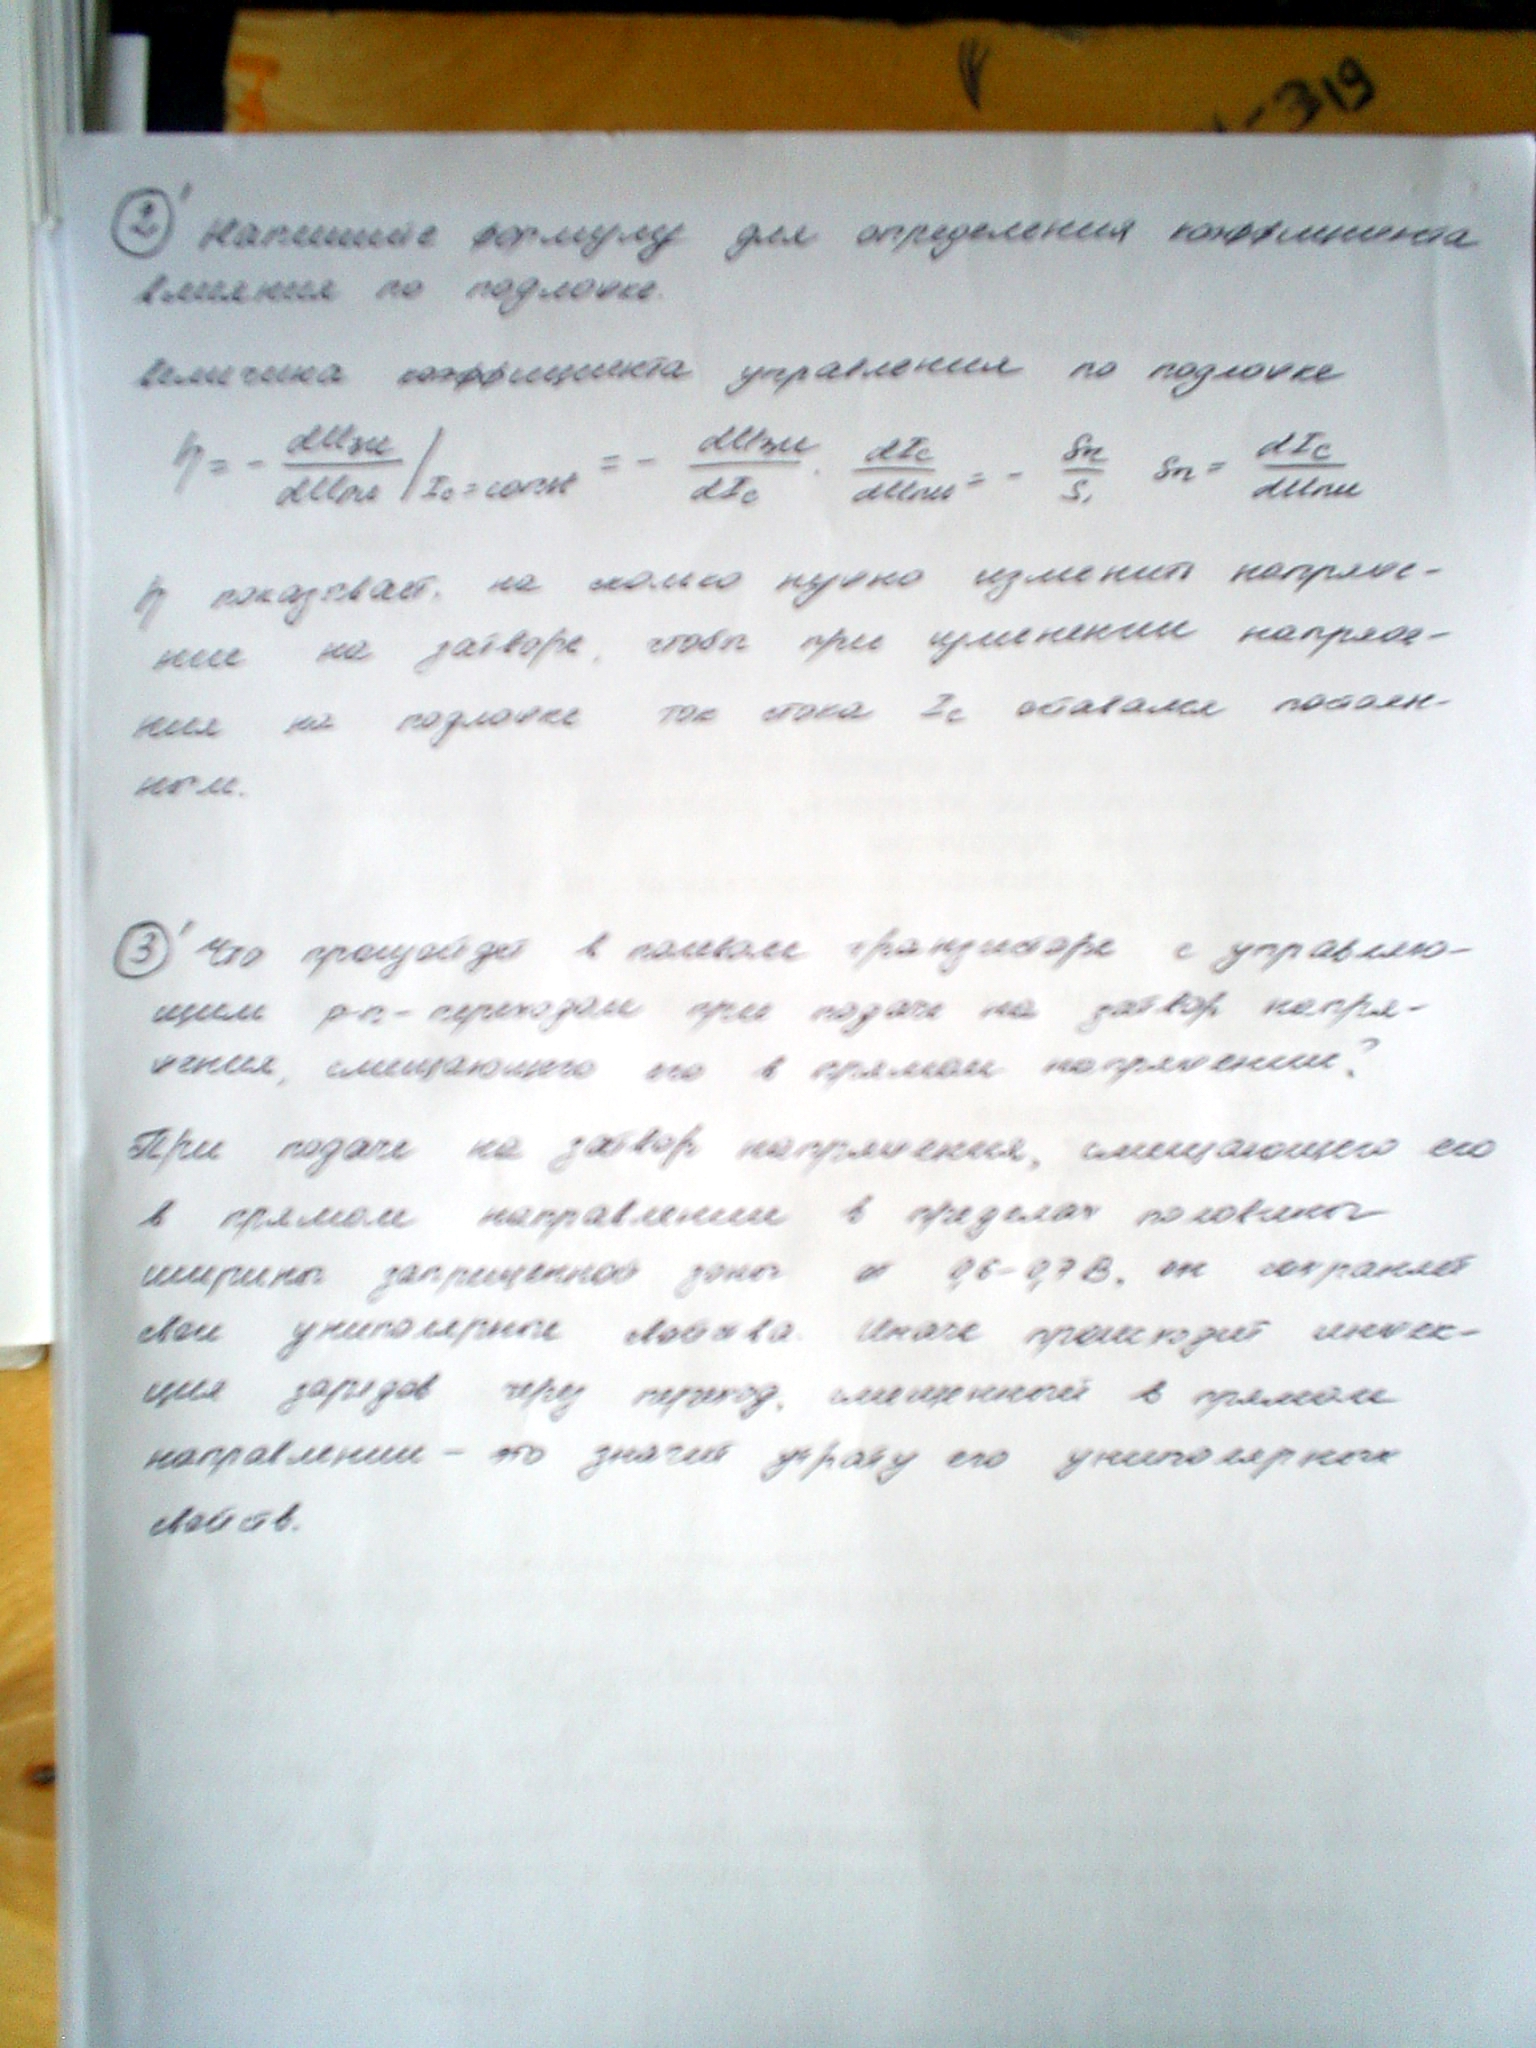 -319
2' Напишите формулу для определения коэффициента
влияния по подложке.
Величина коэффициента управления по подложке
η = - dUзи/dUпи |Ic = const = - dUзи/dIc · dIc/dUпи = - Sп/S, Sп = dIc/dUпи
η показывает, на сколько нужно изменить напряже-
ние на затворе, чтобы при изменении напряже-
ния на подложке ток стока Ic оставался постоян-
ным.
3' Что произойдет в полевом транзисторе с управляю-
щим p-n-переходом при подаче на затвор напря-
жения, смещающего его в прямом напряжении?
При подаче на затвор напряжения, смещающего его
в прямом направлении в пределах половины
ширины запрещенной зоны 0,6-0,7 В, он сохраняет
свои униполярные свойства. Иначе происходит инжек-
ция зарядов через переход, смещенный в прямом
направлении - это значит утрату его униполярных
свойств.